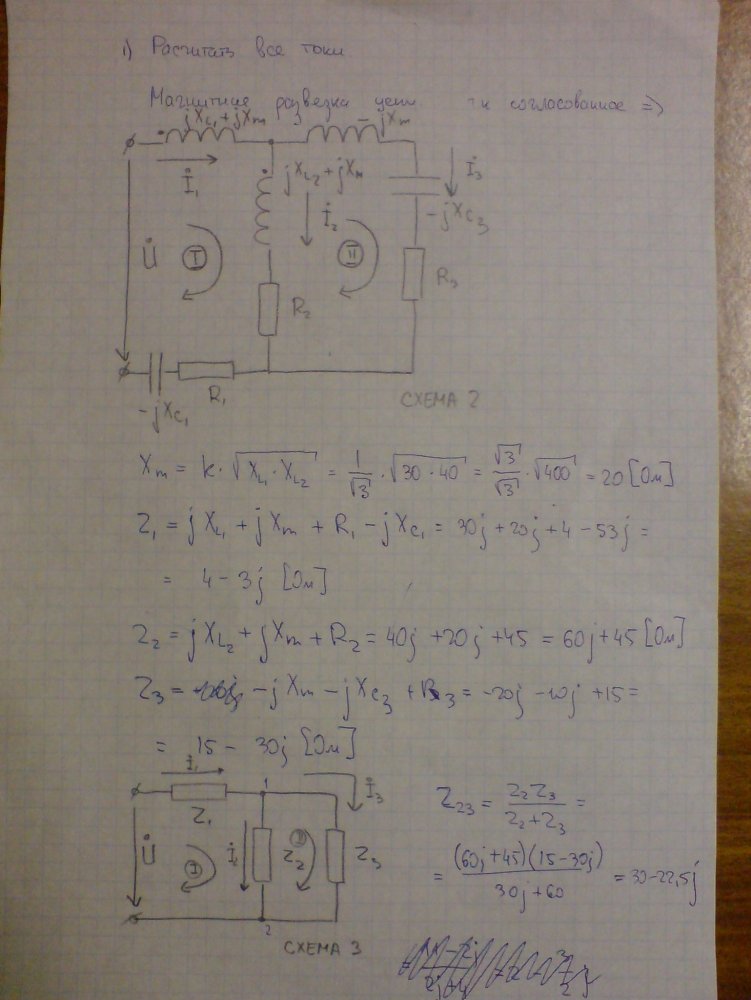 1) Расчитать все токи.
Магнитная развезка цепи согласованное =>
jX_L1 + jX_m
- jX_m
İ_1
jX_L2 + jX_m
İ_2
İ_3
-jX_C3
U̇
I
II
R_3
R_2
R_1
-jX_C1
СХЕМА 2
X_m = k · √(X_L1 · X_L2) = 1/√3 · √(30 · 40) = √3/√3 · √400 = 20 [Ом]
Z_1 = jX_L1 + jX_m + R_1 - jX_C1 = 30j + 20j + 4 - 53j =
= 4 - 3j [Ом]
Z_2 = jX_L2 + jX_m + R_2 = 40j + 20j + 45 = 60j + 45 [Ом]
Z_3 = -jX_m - jX_C3 + R_3 = -20j - 10j + 15 =
= 15 - 30j [Ом]
İ_1
1
İ_3
Z_1
U̇
I
İ_2
Z_2
II
Z_3
2
СХЕМА 3
Z_23 = Z_2 Z_3 / Z_2 + Z_3 =
= (60j + 45)(15 - 30j) / 30j + 60 = 30 - 22,5j